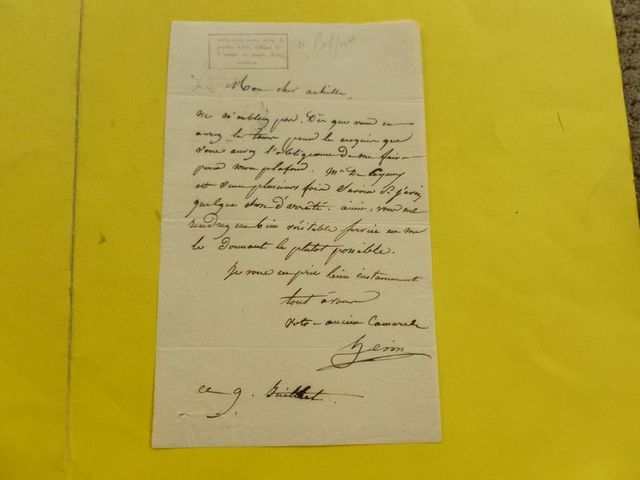 Mon cher achille,
ne m'oubliez pas. Dès que vous en
aurez le tems pour le croquis que
vous avez l'obligeance de me faire
pour mon plafond. Mr De
est venu plusieurs fois savoir si j'avois
quelque chose d'arrêté. ainsi, vous me
rendrez un bien véritable service en me
le donnant le plutot possible.
Je vous en prie bien instamment
tout à vous
votre ancien Camarade
Heim
ce 9. Juillet.